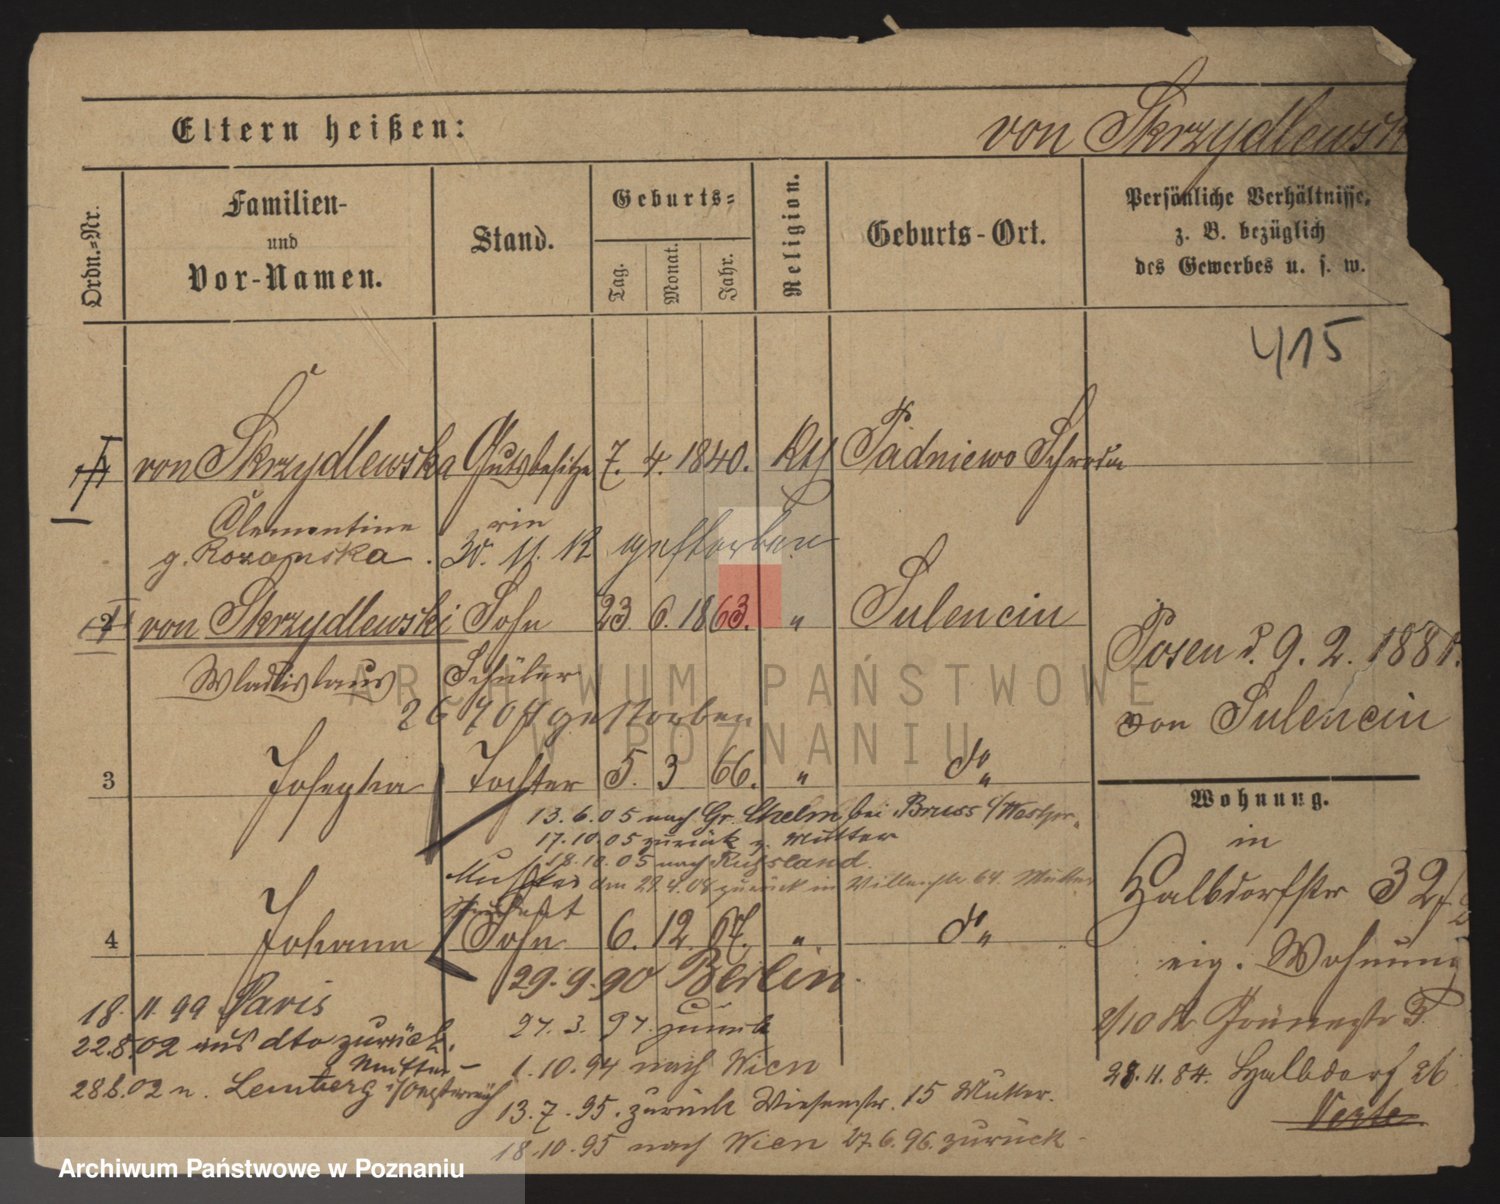 Eltern heißen:
von Skrzydlewski
Ordn.-Nr.
Familien-
und
Vor-Namen.
Stand.
Geburts-
Tag.
Monat.
Jahr.
Religion.
Geburts-Ort.
Persönliche Verhältnisse,
z. B. bezüglich
des Gewerbes u. s. w.
415
von Skrzydlewska Gutsbesitze 7. 4. 1840. Kth Padniewo
Clementine rin
g. 30. 11. 12 gestorben
2 von Skrzydlewski Sohn 23 6. 1863. " Sulencin
Wladislaus Schüler
26 gestorben
3 Josepha Tochter 5. 3 66. " do "
13.6.05 nach Gr. Chelm bei Bruss i/Westpr.
17.10.05 zurück z. Mutter
18.10.05 nach Russland.
den zurück in 64. Mutter
4 Johann Sohn 6. 12. 67. " do "
29.9.90 Berlin.
18. 11. 99 Paris
27. 3. 97. zurück
22.8.02 aus dto zurück.
Mutter -
1.10.94 nach Wien
28.6.02 n. Lemberg i/Oesterreich
13.7.95. zurück Wiesenstr. 15 Mutter.
18.10.95 nach Wien 27.6.96. zurück -
Posen d. 9. 2. 1881.
von Sulencin
Wohnung.
in
Halbdorfstr 32
eig. Wohnung
2/10 82
28.11.84. Halbdorf 26
ARCHIWUM PAŃSTWOWE
W POZNANIU
Archiwum Państwowe w Poznaniu